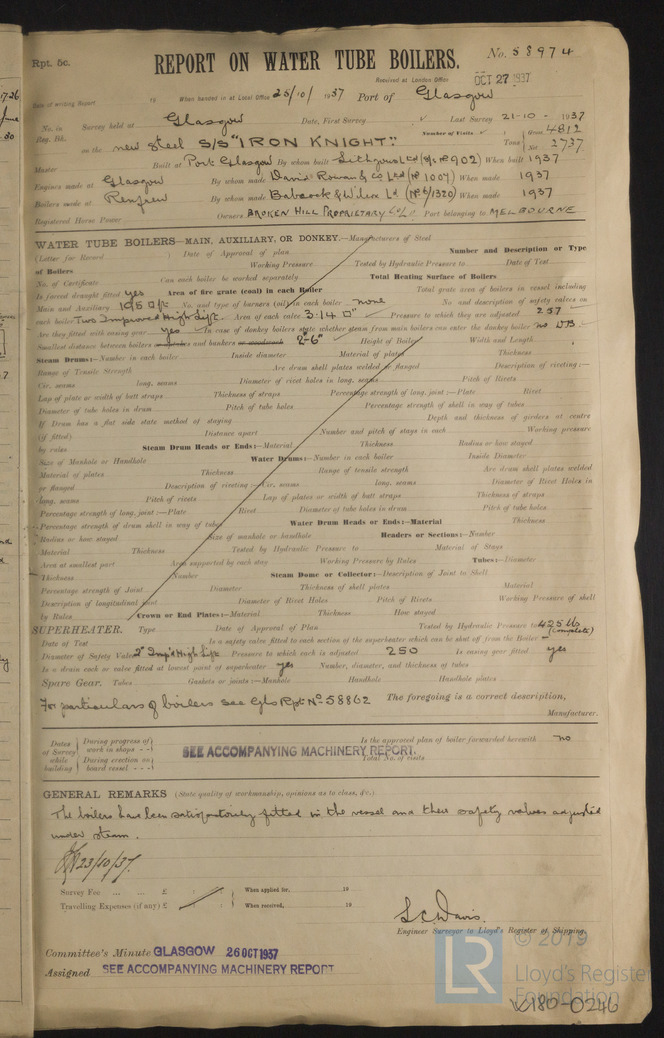 Rpt. 5c.
REPORT ON WATER TUBE BOILERS. No. 58974
Received at London Office OCT 27 1937
Date of writing Report 19 When handed in at Local Office 25/10/ 1937 Port of Glasgow
No. in Reg. Bk. Survey held at Glasgow Date, First Survey Last Survey 21-10- 1937
Number of Visits
on the new steel S/S "IRON KNIGHT" Tons Gross 4812 Net 2737
Master Built at Port Glasgow By whom built Lithgows Ltd (S/S No 902) When built 1937
Engines made at Glasgow By whom made David Rowan & Co Ltd (No 1007) When made 1937
Boilers made at Renfrew By whom made Babcock & Wilcox Ld (No 6/1320) When made 1937
Registered Horse Power Owners BROKEN HILL PROPRIETARY Co Ld Port belonging to MELBOURNE
WATER TUBE BOILERS—MAIN, AUXILIARY, OR DONKEY.—Manufacturers of Steel
(Letter for Record ) Date of Approval of plan Number and Description or Type
of Boilers Working Pressure Tested by Hydraulic Pressure to Date of Test
No. of Certificate Can each boiler be worked separately Total Heating Surface of Boilers
Is forced draught fitted yes Area of fire grate (coal) in each Boiler Total grate area of boilers in vessel including
Main and Auxiliary 195 □ft No. and type of burners (oil) in each boiler none No. and description of safety valves on
each boiler Two Improved High Lift Area of each valve 3.14 □" Pressure to which they are adjusted 257
Are they fitted with easing gear yes In case of donkey boilers state whether steam from main boilers can enter the donkey boiler no DB
Smallest distance between boilers and bunkers 2'-6" Height of Boiler Width and Length
Steam Drums:—Number in each boiler Inside diameter Material of plates Thickness
Range of Tensile Strength Are drum shell plates welded or flanged Description of riveting:—
Cir. seams long. seams Diameter of rivet holes in long. seams Pitch of Rivets
Lap of plate or width of butt straps Thickness of straps Percentage strength of long. joint:—Plate Rivet
Diameter of tube holes in drum Pitch of tube holes Percentage strength of shell in way of tubes
If Drum has a flat side state method of staying Depth and thickness of girders at centre
(if fitted) Distance apart Number and pitch of stays in each Working pressure
by rules Steam Drum Heads or Ends:—Material Thickness Radius or how stayed
Size of Manhole or Handhole Water Drums:—Number in each boiler Inside Diameter
Material of plates Thickness Range of tensile strength Are drum shell plates welded
or flanged Description of riveting:—Cir. seams long. seams Diameter of Rivet Holes in
long. seams Pitch of rivets Lap of plates or width of butt straps Thickness of straps
Percentage strength of long. joint:—Plate Rivet Diameter of tube holes in drum Pitch of tube holes
Percentage strength of drum shell in way of tubes Water Drum Heads or Ends:—Material Thickness
Radius or how stayed Size of manhole or handhole Headers or Sections:—Number
Material Thickness Tested by Hydraulic Pressure to Material of Stays
Area at smallest part Area supported by each stay Working Pressure by Rules Tubes:—Diameter
Thickness Number Steam Dome or Collector:—Description of Joint to Shell
Percentage strength of Joint Diameter Thickness of shell plates Material
Description of longitudinal joint Diameter of Rivet Holes Pitch of Rivets Working Pressure of shell
by Rules Crown or End Plates:—Material Thickness How stayed
SUPERHEATER. Type Date of Approval of Plan Tested by Hydraulic Pressure to 425 lb (complete)
Date of Test Is a safety valve fitted to each section of the superheater which can be shut off from the Boiler
Diameter of Safety Valve 2" Imp'd High Lift Pressure to which each is adjusted 250 Is easing gear fitted yes
Is a drain cock or valve fitted at lowest point of superheater yes Number, diameter, and thickness of tubes
Spare Gear. Tubes Gaskets or joints:—Manhole Handhole Handhole plates
For particulars of boilers see Gls Rpt. No 58862 The foregoing is a correct description,
Manufacturer.
Dates of Survey while building During progress of work in shops - - Is the approved plan of boiler forwarded herewith no
During erection on board vessel - - - SEE ACCOMPANYING MACHINERY REPORT. Total No. of visits
GENERAL REMARKS (State quality of workmanship, opinions as to class, &c.)
The boilers have been satisfactorily fitted in the vessel and their safety valves adjusted
under steam.
23/10/37.
Survey Fee ... ... £ : : When applied for, 19
Travelling Expenses (if any) £ : : When received, 19
L C Davis.
Engineer Surveyor to Lloyd's Register of Shipping.
Committee's Minute GLASGOW 26 OCT 1937
Assigned SEE ACCOMPANYING MACHINERY REPORT
LR © 2019
Lloyd's Register
Foundation
W180-0246